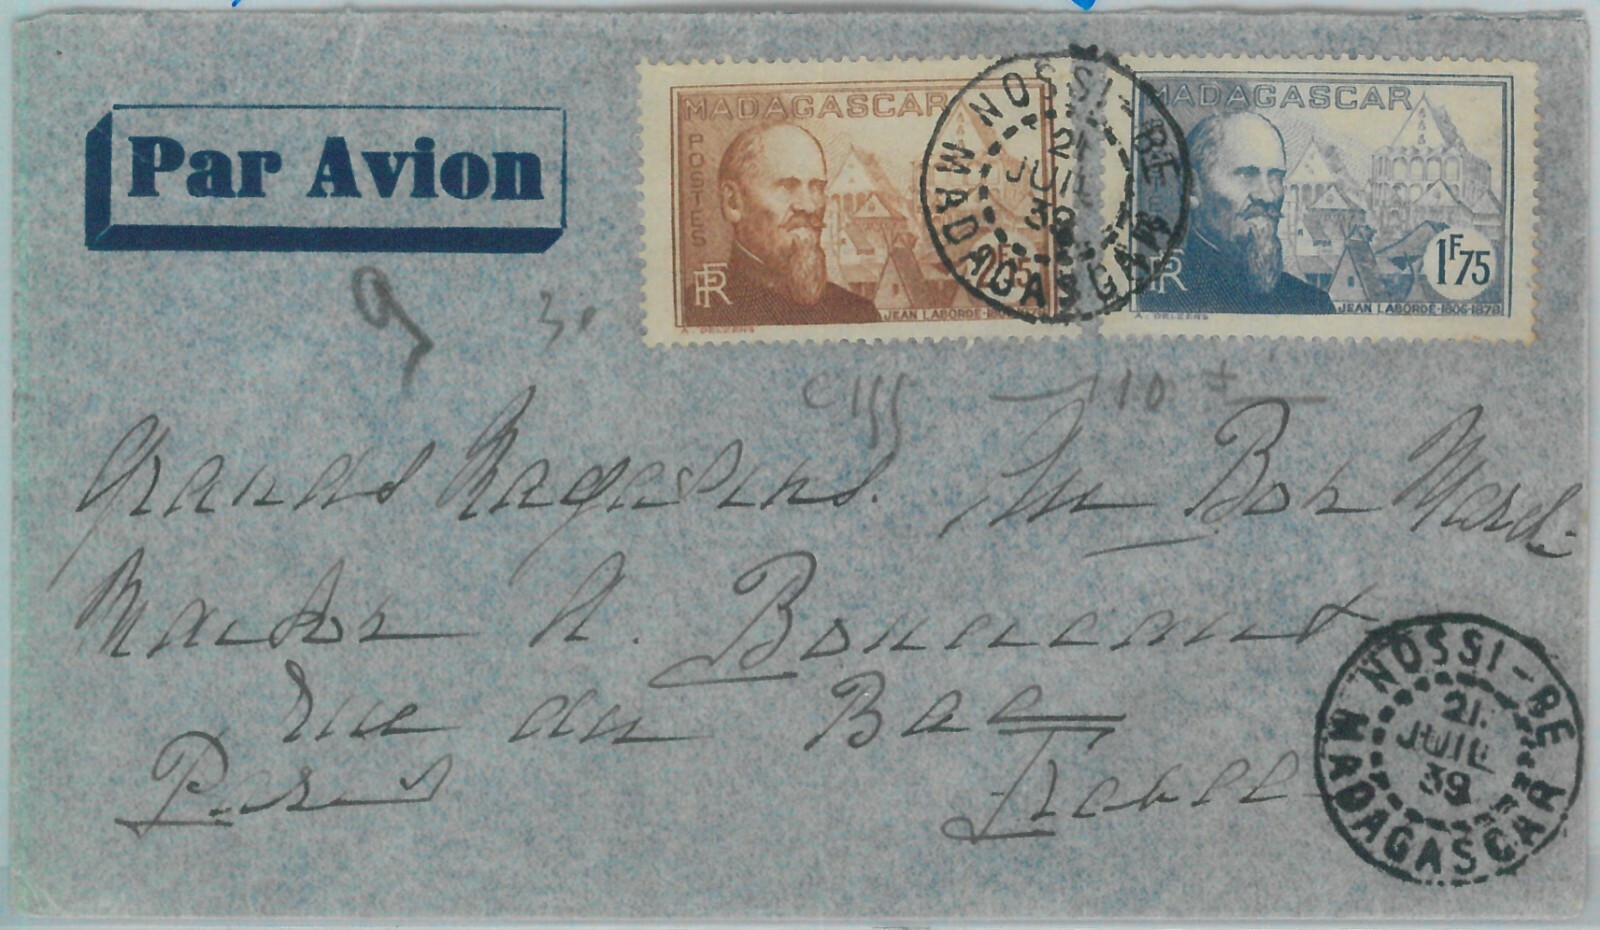 Par Avion
MADAGASCAR
POSTES
RF
JEAN LABORDE-1806-1878
A. DELZERS
MADAGASCAR
RF
1F75
JEAN LABORDE-1806-1878
A. DELZERS
NOSSI-BE
21
JUIL
39
MADAGASCAR
9
Grands Magasins Au Bon March
Maison A. Boucicaut
Rue du Bac
Paris France
NOSSI-BE
21.
JUIL
39
MADAGASCAR